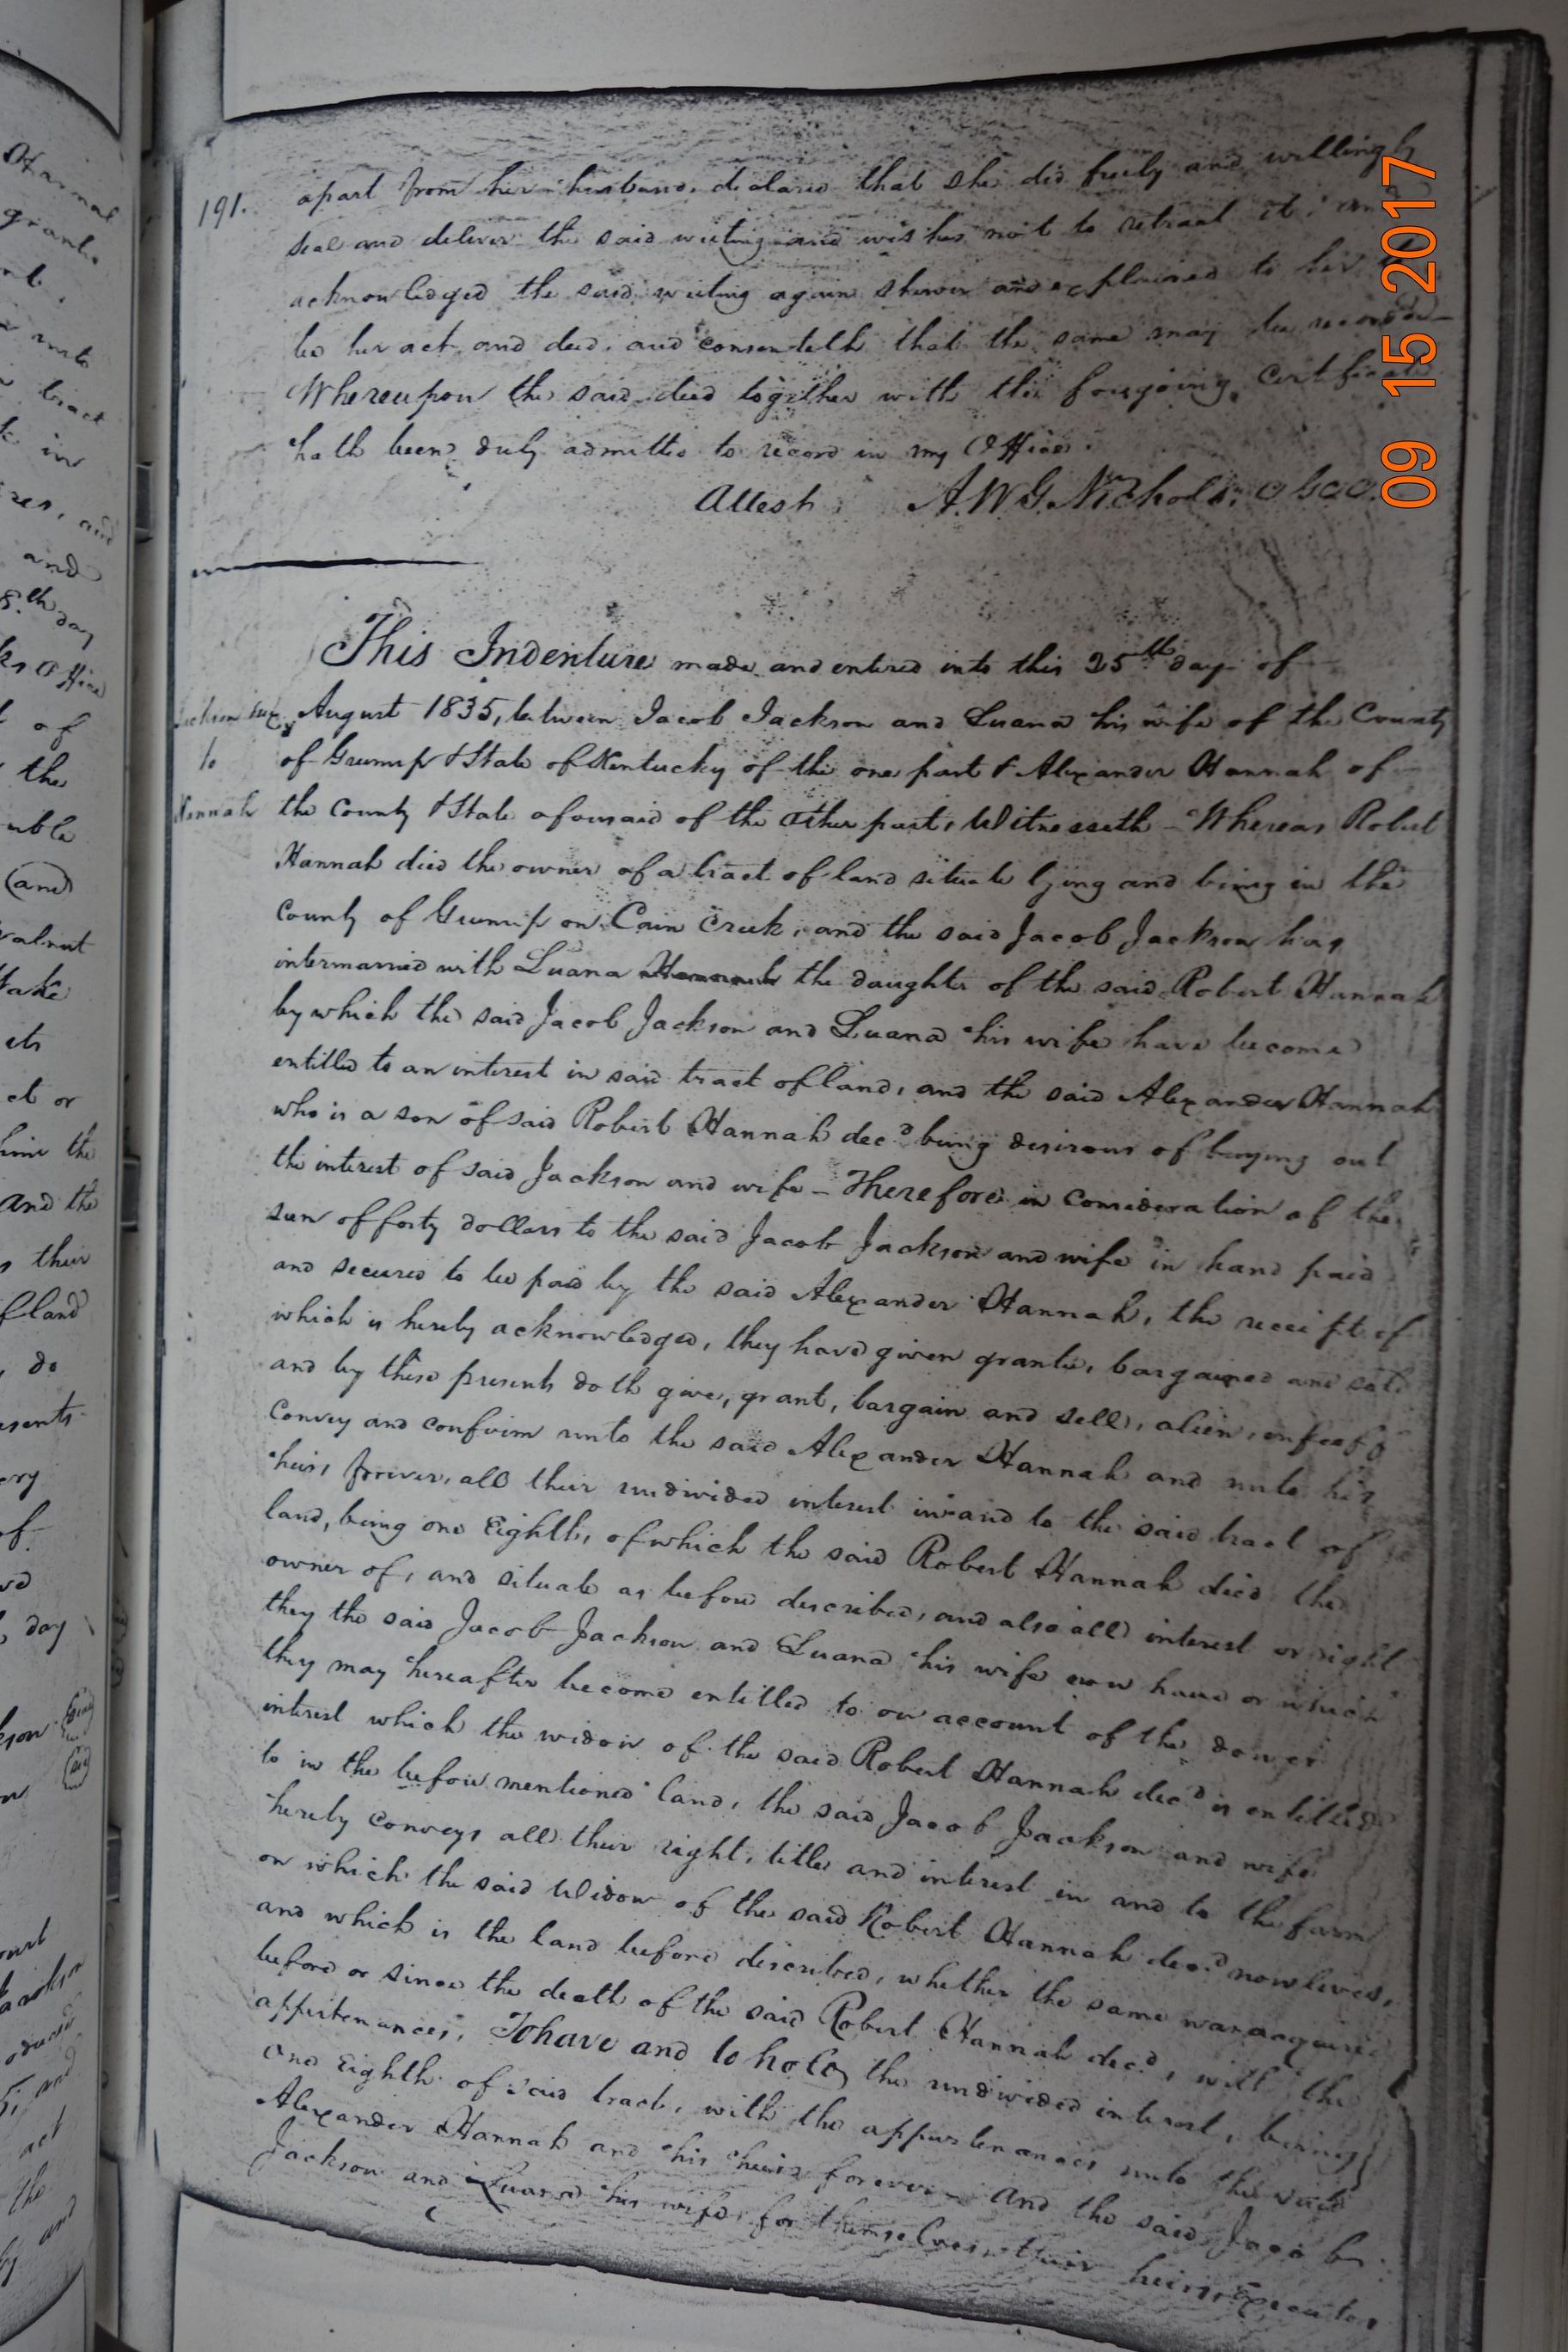 191.
apart from her husband, declared that she did freely and willingly
seal and deliver the said writing and wishes not to retract it, and
acknowledged the said writing again shewn and explained to her, to
be her act and deed, and consenteth that the same may be recorded
Whereupon the said deed together with the foregoing Certificate
hath been duly admitted to record in my Office.
Attest, A. W. G. Nichols,
This Indenture made and entered into this 25th day of
Jackson &ux August 1835, between Jacob Jackson and Luana his wife of the County
to of Greenup & State of Kentucky of the one part & Alexander Hannah of
Hannah the County & State aforesaid of the other part, Witnesseth – Whereas Robert
Hannah died the owner of a tract of land situate lying and being in the
County of Greenup on Cain Creek, and the said Jacob Jackson has
intermarried with Luana Hannah the daughter of the said Robert Hannah
by which the said Jacob Jackson and Luana his wife have become
entitled to an interest in said tract of land, and the said Alexander Hannah
who is a son of said Robert Hannah decd being desirous of buying out
the interest of said Jackson and wife – Therefore in consideration of the
sum of forty dollars to the said Jacob Jackson and wife in hand paid
and secured to be paid by the said Alexander Hannah, the receipt of
which is hereby acknowledged, they have given granted, bargained and sold
and by these presents doth give, grant, bargain and sell, alien, enfeoff
convey and confirm unto the said Alexander Hannah and unto his
heirs forever, all their undivided interest in and to the said tract of
land, being one Eighth, of which the said Robert Hannah died the
owner of, and situate as before described, and also all interest or right
they the said Jacob Jackson and Luana his wife now have or which
they may hereafter become entitled to on account of the dower
interest which the widow of the said Robert Hannah decd is entitled
to in the before mentioned land, the said Jacob Jackson and wife
hereby conveys all their right, title and interest in and to the farm
on which the said Widow of the said Robert Hannah decd now lives,
and which is the land before described, whether the same was acquired
before or since the death of the said Robert Hannah decd, with the
appurtenances, To have and to hold the undivided interest, being
one Eighth of said tract, with the appurtenances unto the said
Alexander Hannah and his heirs forever – And the said Jacob
Jackson and Luana his wife, for themselves, their heirs, Executors
09 15 2017